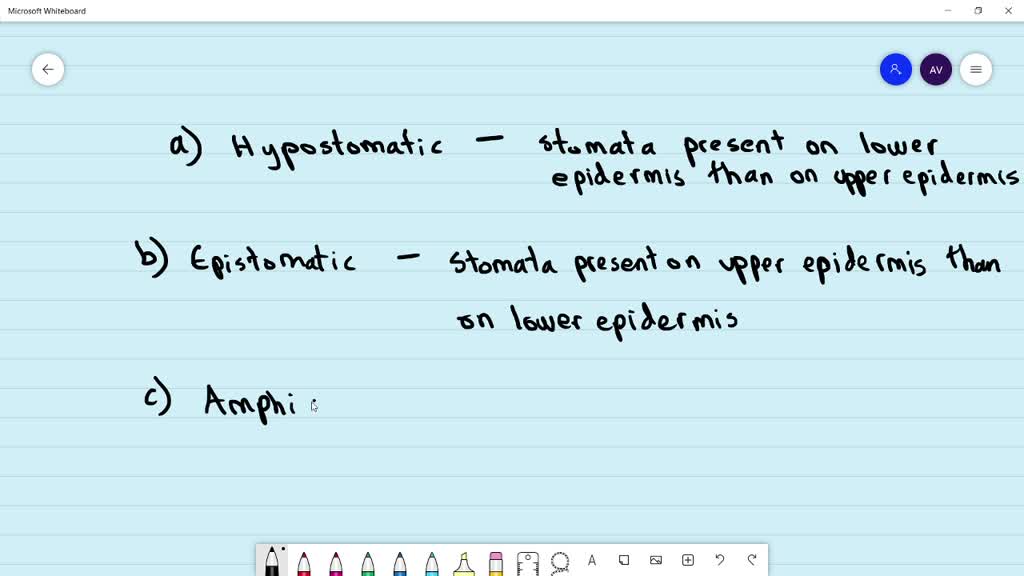 Microsoft Whiteboard
AV
a) Hypostomatic - stomata present on lower
epidermis than on upper epidermis
b) Epistomatic - stomata present on upper epidermis than
on lower epidermis
c) Amphi
A